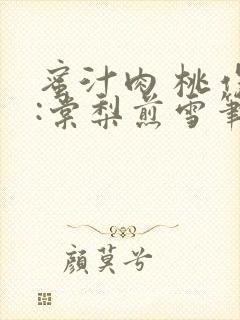 蜜汁肉桃作
:棠梨煎雪筆
顏莫兮